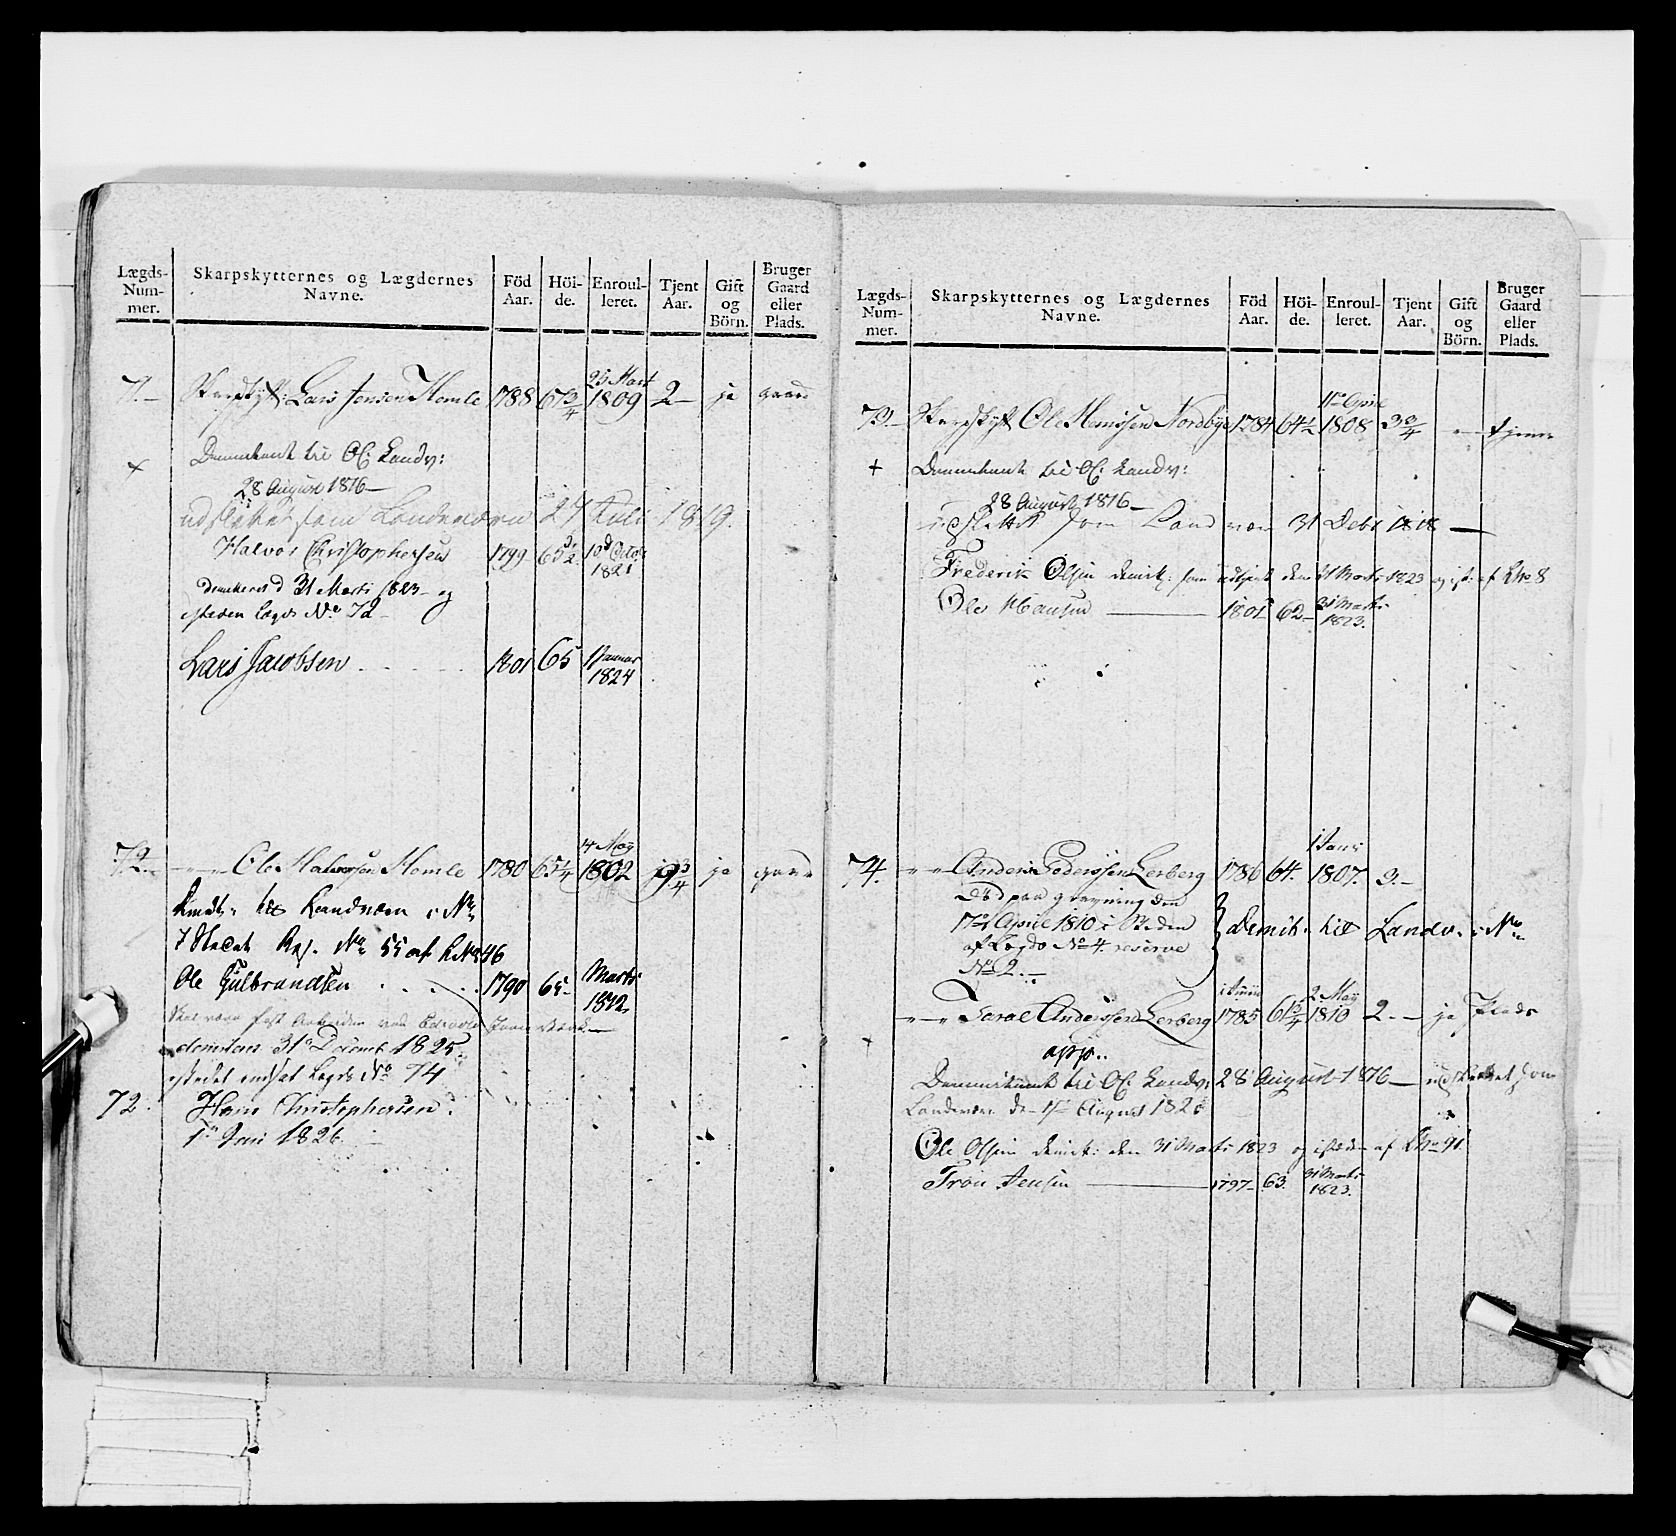 Lægds-Num-mer. Skarpskytternes og Lægdernes Navne. Föd Aar. Höi-de. Enroul-leret. Tjent Aar. Gift og Börn. Bruger Gaard eller Plads.
71.– Skarpskytt: Lars Jensen Homle 1788 67 3/4 25 Mart 1809 2– ja gaard
+ til Of: Landv:
28 August 1816–
udslettet som Landværn 27 Juli 1819.
Halvor Christophersen 1799 65 1/2 10 Octobr 1821
31 Marti 1823– og
isteden Lægds No 72–
Lars Jacobsen 1801 65 1 Januar 1824
72.– Ole Halvorsen Homle 1780 65 1/4 14 May 1802 9 3/4 ja gaard
til Landværn i No
I Stedet Res. No 55 af L No 46
Ole Gulbrandsen 1790 65– Marti 1812
Skal være fast Arbeider ved
31 Decemb 1825
istedet indsat Lægds No 74
72. Hans Christophersen
1 Juni 1826
Lægds-Num-mer. Skarpskytternes og Lægdernes Navne. Föd Aar. Höi-de. Enroul-leret. Tjent Aar. Gift og Börn. Bruger Gaard eller Plads.
73.– Skarpskytt Ole Hansen Nordbye 1784 64 1/2 11 April 1808 3 3/4 – tjener
+ til Of: Landv:
28 August 1816–
udslettet som Landværn 31 Debr 1818 –
Frederik Olsen demit: som udtjent den 31 Marti 1823 og ist: af L No 8
Ole Hansen – 1801 62– 31 Marti 1823.
74. Anders Pederssen Lerberg 1786 64. 1 Janv 1807. 3.–
Död paa gravning den
17 April 1810 i Steden
af Lægds No 4. reserve
No 2.–
Demit. til Landv. i No
Taral Anderssen Lerberg 1785 61 3/4 2 May 1810 2.– ja Plads
+ app..
til Of: Landv: 28 August 1816 – udslettet som
Landværn den August 182
Ole Olsen demit: den 31 Marti 1823 og isteden af L No 91
Tron Jensen – 1797– 63. 31 Marti 1823.